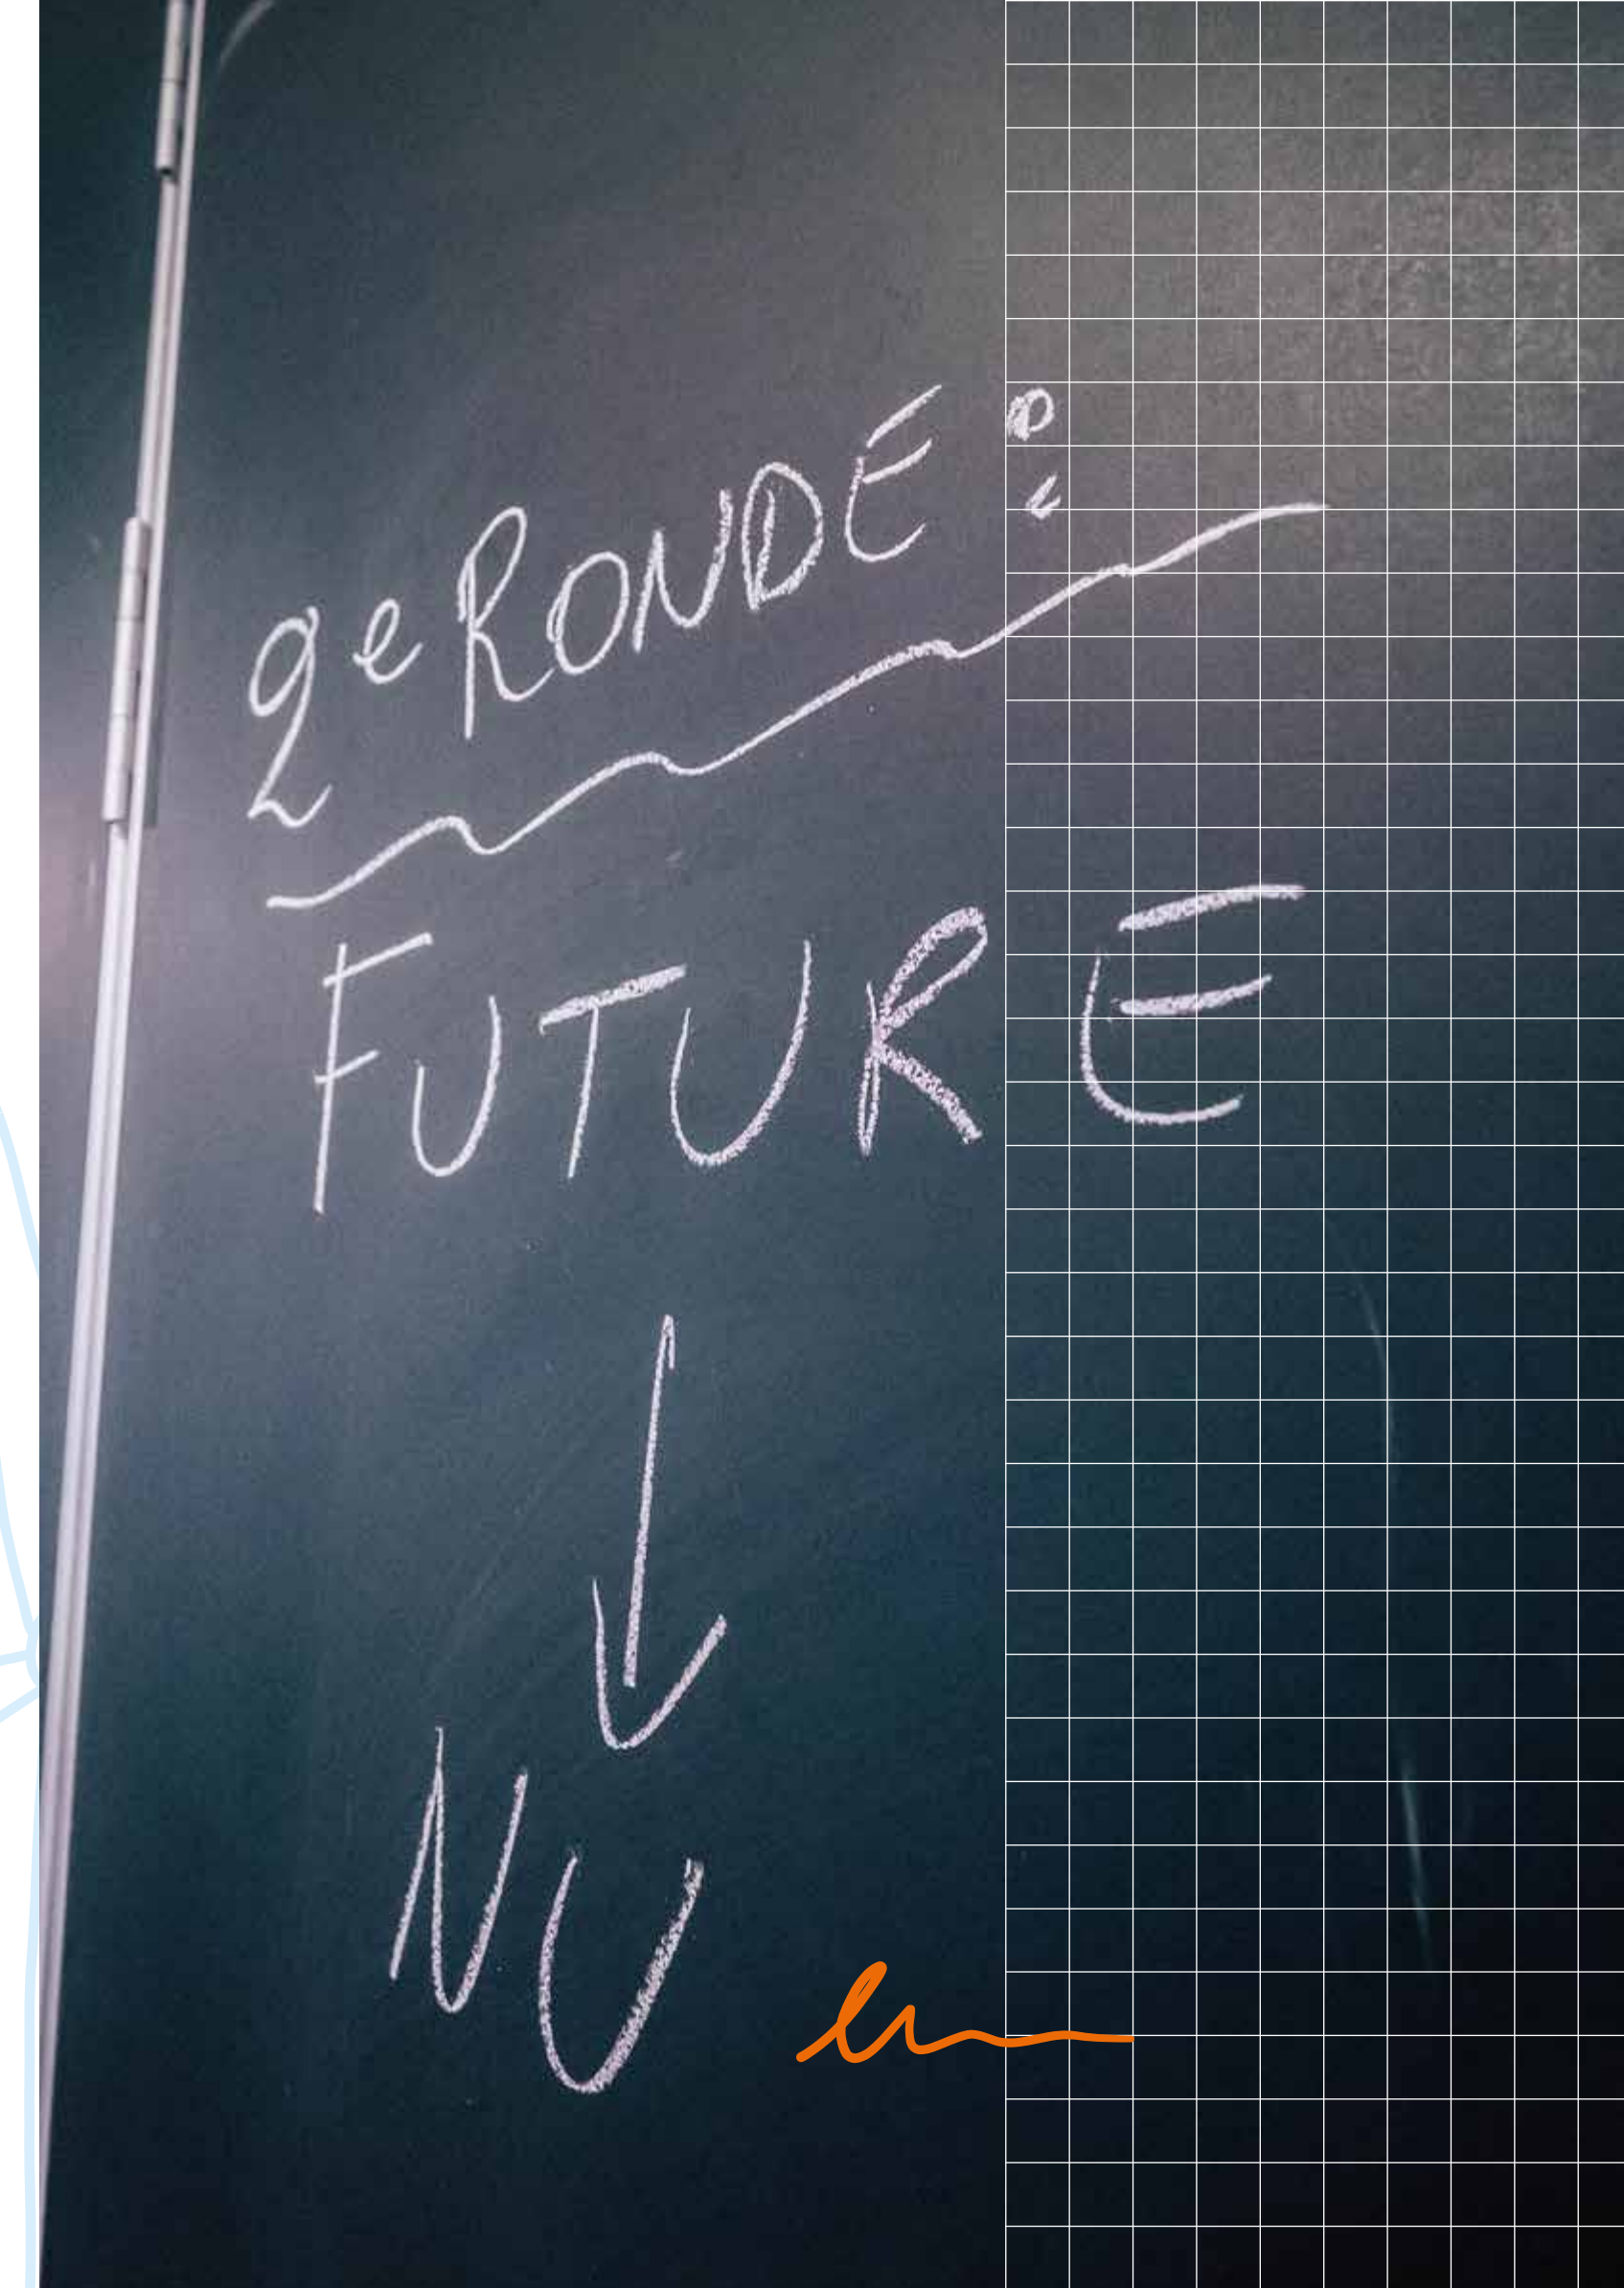 2e RONDE:
FUTURE
↓
NU